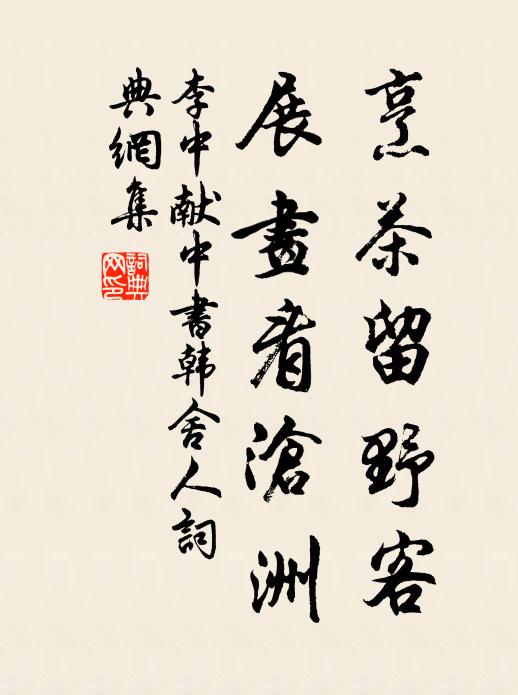 烹茶留野客
展畫看滄洲
李中献中書韩舍人詞
典網集
詞典
网印